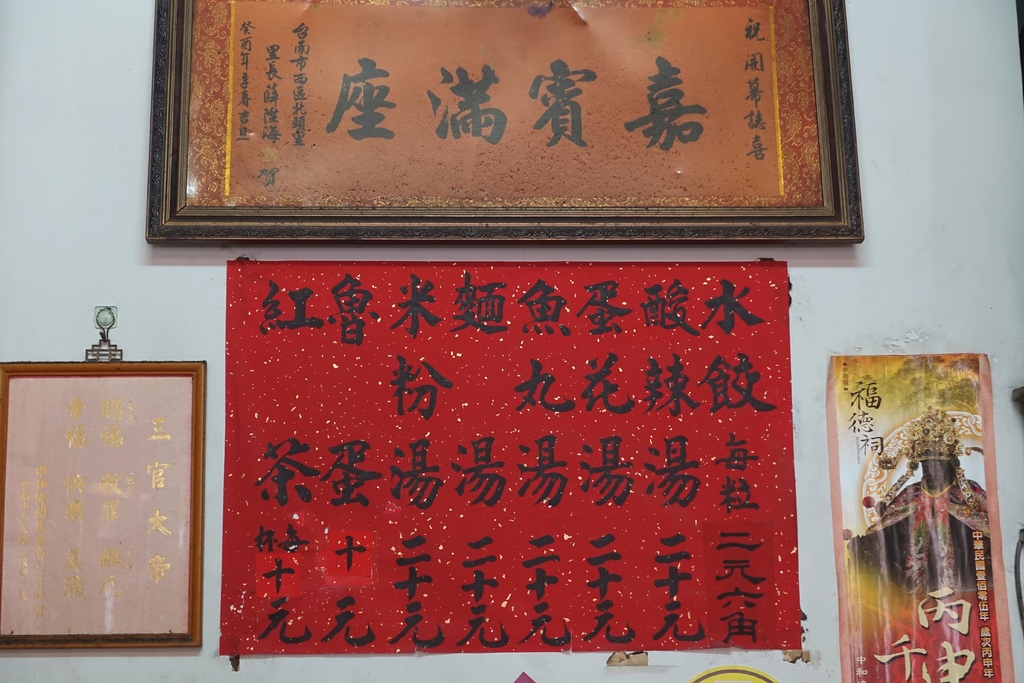 祝開幕誌喜
嘉賓滿座
台南市西區北頭里
里長薛滄海賀
癸酉年季春吉旦
水餃每粒二元六角
酸辣湯二十元
蛋花湯二十元
魚丸湯二十元
麵湯二十元
米粉湯二十元
魯蛋十元
紅茶每杯十元
三官大帝
福德祠
中華民國壹佰零伍年 歲次丙申年
丙申